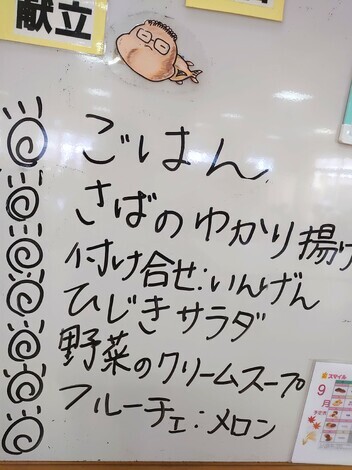 献立
ごはん
さばのゆかり揚げ
付け合せ:いんげん
ひじきサラダ
野菜のクリームスープ
フルーチェ:メロン
スマイル
9
月